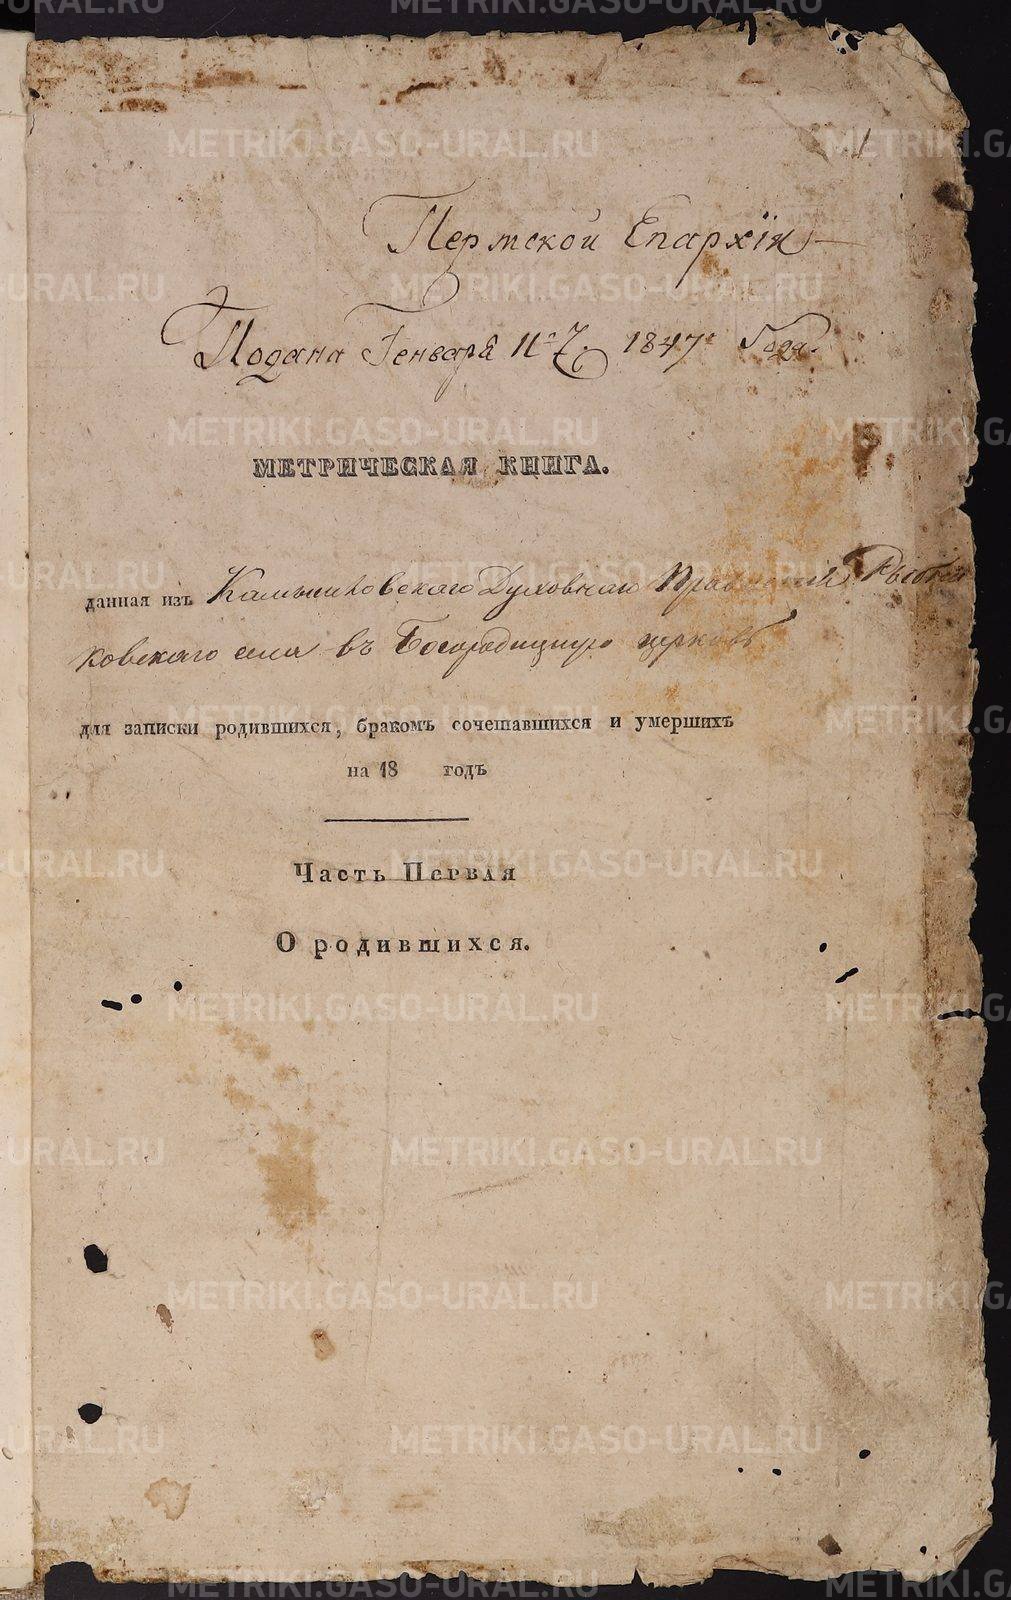 METRIKI.GASO-URAL.RU
1
Пермской Епархіи
Подана Генваря 11го 1847го Года.
МЕТРИЧЕСКАЯ КНИГА.
данная изъ Камышловскаго Духовнаго Правленія Рыбни
ковскаго села въ Богородицкую церковь
для записки родившихся, бракомъ сочетавшихся и умершихъ
на 18 годъ
Часть Первая
О родившихся.